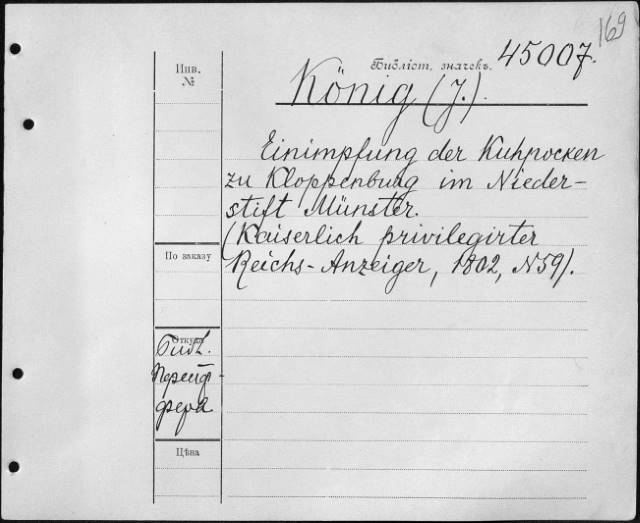 169
Инв.
№
Библіот. значекъ. 45007.
König (J.).
Einimpfung der Kuhpocken
zu Kloppenburg im Nieder-
stift Münster.
(Kaiserlich privilegirter
Reichs-Anzeiger, 1802, N 59).
По заказу
Откуда
Библ.
Цѣна